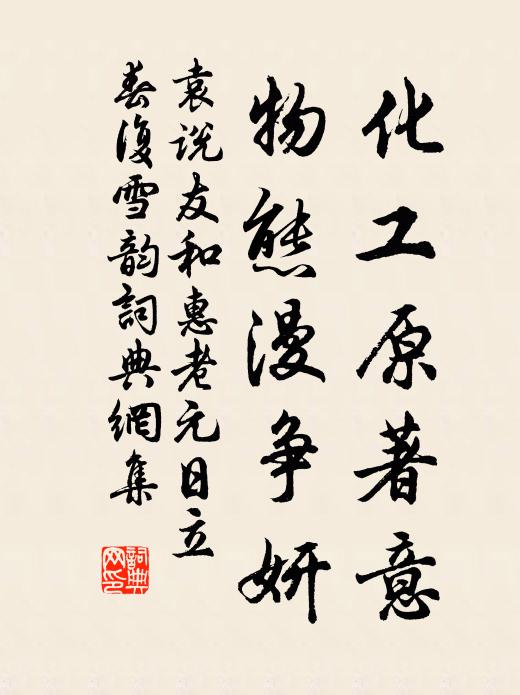 化工原著意
物態漫争妍
袁说友和惠老元日立
春復雪韵詞典網集
詞典网印